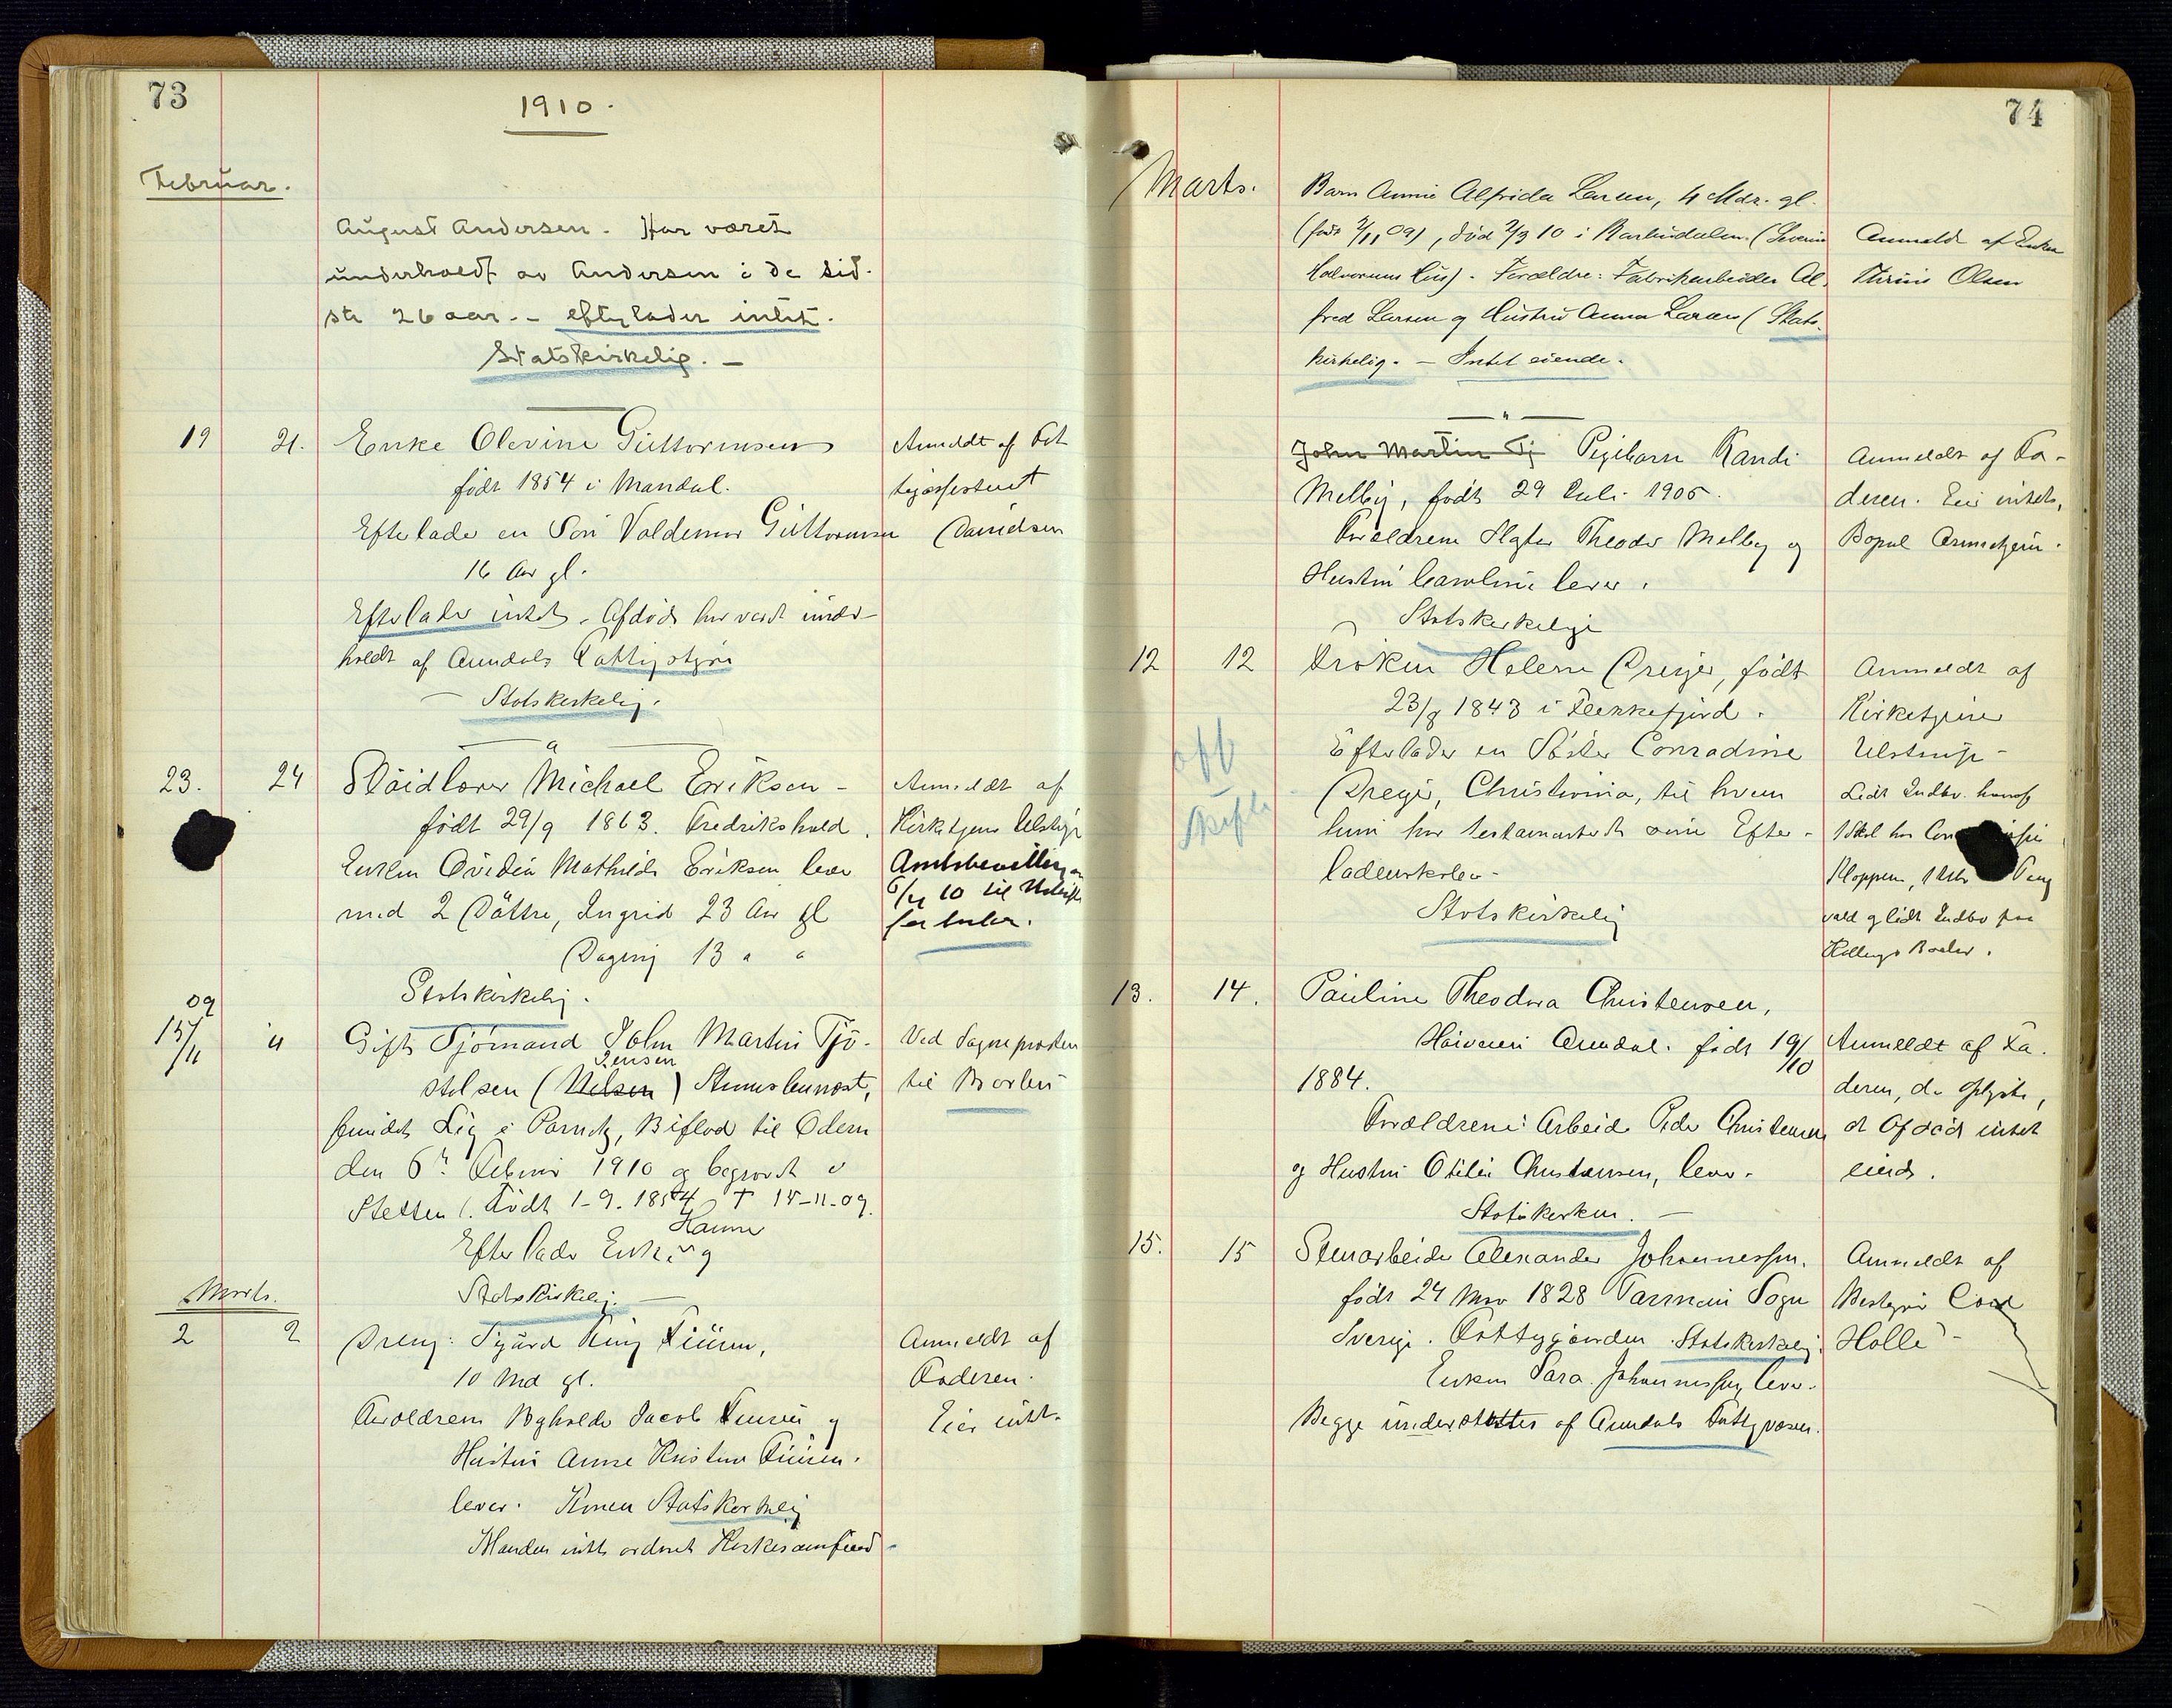 73
1910.
Februar.
August Andersen. Har været
underholdt av Andersen i de sid-
ste 26 aar. - efterlader intet.
Statskirkelig. -
19 21. Enke Olevine Guttormsen
født 1854 i Mandal.
Efterlader en Søn Valdemar Guttormsen
16 Aar gl.
Efterlader intet. Afdøde har været under-
holdt af Arendals Fattigstyre
Statskirkelig.
Anmeldt af Fat
Davidsen
23. 24 Sløidlærer Michael Eriksen -
født 29/9 1863. Fredrikshald.
Enken Ovidia Mathilde Eriksen lever
med 2 Døttre, Ingrid 23 Aar gl
Dagny 13 " "
Statskirkelig.
Anmeldt af
Kirketjener Ulstrup
Amtsbevilling av
6/4 10 til Uskifte
for Enken.
09
15/11 " Gift Sjømand John Martin Tjø-
stelsen (Nilsen) Jensen
fundet Lig i Parnitz, Biflod til Odern
den 6te Februar 1910 og begravet i
Stettin (. Født 1-9. 1854 † 15-11-09.
Efterlader Enke Hanne
Statskirkelig. -
Ved Sogneprosten
til Barbu
Marts.
2 2 Dreng: Sigurd King
10 Md gl.
Forældrene Bogholder Jacob
Hustru Anne Kristine
lever. Konen Statskirkelig
Manden intet ordnet Kirkesamfund -
Anmeldt af
Faderen.
Eier intet.
74
Marts. Barn Annie Alfrida Larsen, 4 Mdr. gl.
(født 2/11 09), død 2/3 10 i (Severin
Halvorsens Hus). Forældre: Fabrikarbeider Al-
fred Larsen og Hustru Anna Larsen (Stats-
kirkelig. - Intet eiende.
Anmeldt af Enken
Olsen
John Martin Tj Pigebarn Randi
Melby, født 29 Juli 1905.
Forældrene Slagter Theodor Melby og
Hustru Caroline lever.
Statskirkelige
Anmeldt af Fa-
deren. Eier intet,
Bopæl
12 12 Frøken Helene Dreyer, født
23/8 1843 i Flekkefjord.
Efterlader en Søster Conradine
Dreyer, Christiania, til hvem
hun har testamenteret sine Efter-
ladenskaber -
Statskirkelig
off
skifte
Anmeldt af
Kirketjener
Ulstrup -
Lidt Indbo hensat
Kloppene,
vald og lidt Indbo paa
13. 14. Pauline Theodora Christensen,
Arendal. født 19/10
1884.
Forældrene: Arbeider Peder Christensen
og Hustru Otilie Christensen, lever.
Statskirken. -
Anmeldt af Fa-
deren, der oplyste,
at Afdøde intet
eiede.
15. 15 Stenarbeider Alexander Johannessen.
født 24 Mar 1828 Sogn
Sverige. Fattiggaarden. Statskirkelig.
Enken Sara Johannessen lever.
Begge understøttes af Arendals Fattigvæsen.
Anmeldt af
Bestyrer
Holle -